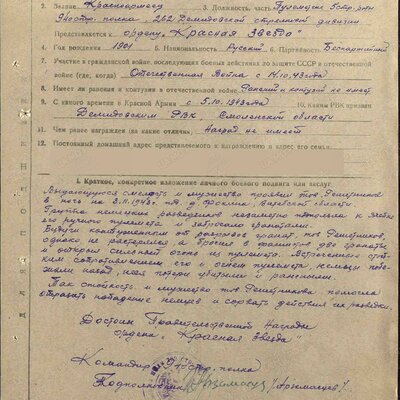 2. Звание Красноармеец 3. Должность, часть Пулеметчик 5 стр. роты
940 стр. полка, 262 Демидовской стрелковой дивизии
Представляется к ордену „Красная Звезда"
4. Год рождения 1901 5. Национальность Русский 6. Партийность Беспартийный
7. Участие в гражданской войне, последующих боевых действиях по защите СССР и отечественной
войне (где, когда) Отечественная Война с 14.10.43 года
8. Имеет ли ранения и контузии в отечественной войне Ранений и контузий не имеет
9. С какого времени в Красной Армии с 5.10.1943 года 10. Каким РВК призван
Демидовским РВК, Смоленской области
11. Чем ранее награжден (за какие отличия) Наград не имеет
12. Постоянный домашний адрес представляемого к награждению и адрес его семьи
I. Краткое, конкретное изложение личного боевого подвига или заслуг
Выдающуюся смелость и мужество проявил тов. Решетников
в ночь на 3.11.1943 г. д. Фокино, Витебской области.
Группа немецких разведчиков незаметно подошла к
его ручного пулемета и забросала гранатами.
Будучи контуженным от разрывов гранат тов. Решетников,
однако не растерялся, а бросил в фашистов две гранаты
и открыл сильный огонь из пулемета. Встреченные стой-
ким сопротивлением его и огнем пулемета, немцы побе-
жали назад, неся потери убитыми и ранеными.
Так стойкость и мужество тов. Решетникова помогла
отразить нападение немцев и сорвать действия их разведки.
Достоин Правительственной Награды
ордена „Красная Звезда"
Командир 940 стр. полка
Подполковник
ДЛЯ ПОДШИВКИ